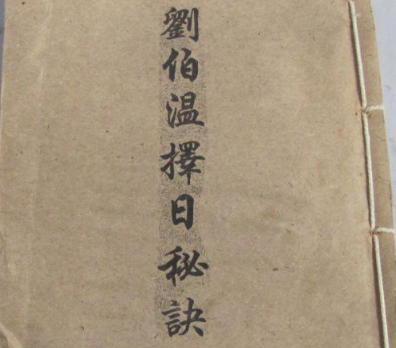 劉伯温擇日秘訣